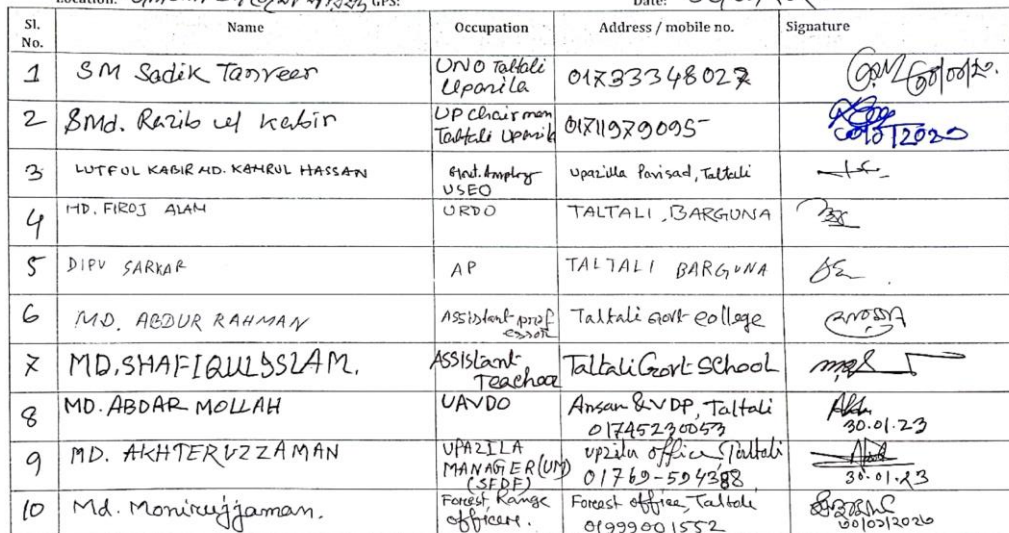 Location: GPS: Date:
Sl. No. Name Occupation Address / mobile no. Signature
1 SM Sadik Tanveer UNO Taltali Upazila 01733348027
2 Md. Razib ul Kabir UP Chairman Taltali Upazila 01711979095
3 LUTFUL KABIR MD. KAMRUL HASSAN USEO Upazilla Parisad, Taltali
4 MD. FIROJ ALAM URDO TALTALI, BARGUNA
5 DIPU SARKAR AP TALTALI BARGUNA
6 MD. ABDUR RAHMAN Assistant professor Taltali Govt College
7 MD. SHAFIQUL ISLAM. ASSIStant Teachoor Taltali Govt School
8 MD. ABDAR MOLLAH UAVDO Ansar & VDP, Taltali
01745230053 30.01.23
9 MD. AKHTERUZZAMAN UPAZILA MANAGER (UM) (SFDF) upzila office, Taltali
01769-594388 30.01.23
10 Md. Monirujjaman. Forest Range officer. Forest office, Taltali
01999001552